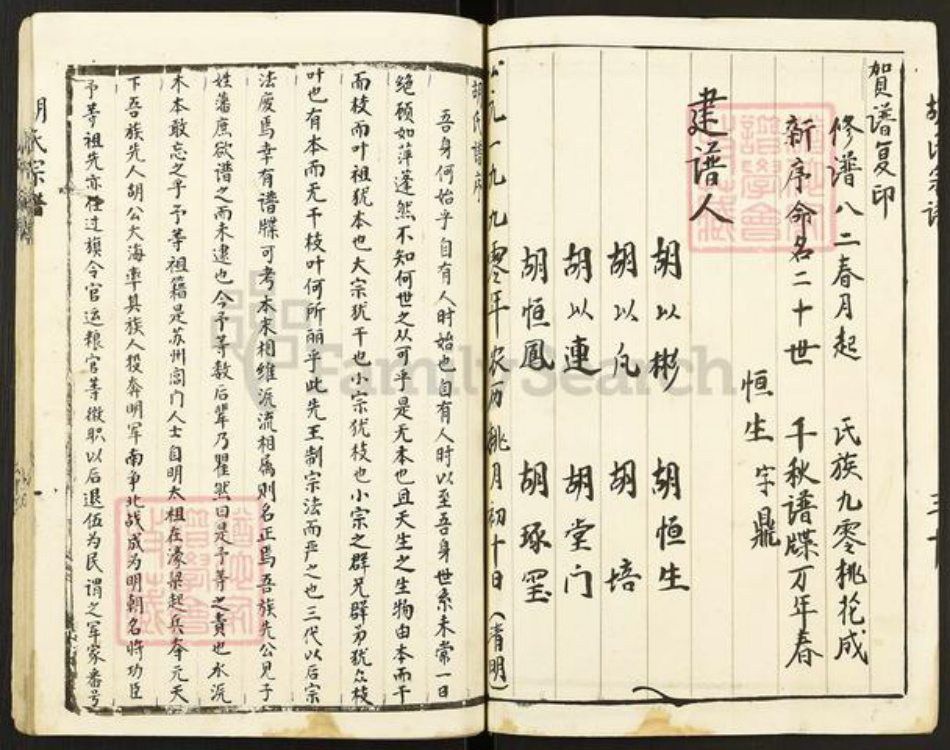 賀谱复印
修谱八二春月起 氏族九零桃花成
新序命名二十世 千秋谱牒万年春
恒生字鼎
建谱人
胡以彬 胡恒生
胡以凡 胡培
胡以連 胡堂门
胡恒鳳 胡琢玺
公元一九九零年农历桃月初十日(清明)
胡氏谱序
吾身何始乎自有人时始也自有人时以至吾身世系未常一日
绝顾如萍蓬然不知何世之从可乎是无本也且天生之生物由本而干
而枝而叶祖犹本也大宗犹干也小宗犹枝也小宗之群兄群弟犹众枝
叶也有本而无干枝叶何所丽乎此先王制宗法而严之也三代以后宗
法废焉幸有谱牒可考本末相维派流相属则名正焉吾族先公见子
姓藩庶欲谱之而未逮也今予等数后辈乃瞿然曰是予等之责也水派
木本敢忘之乎予等祖籍是苏州阊门人士自明太祖在濠梁起兵奔元天
下吾族先人胡公大海率其族人投奔明军南争北战成为明朝名将功臣
予等祖先亦任过旗令官运粮官等微职以后退伍为民谓之军家番号
胡氏宗譜
FamilySearch